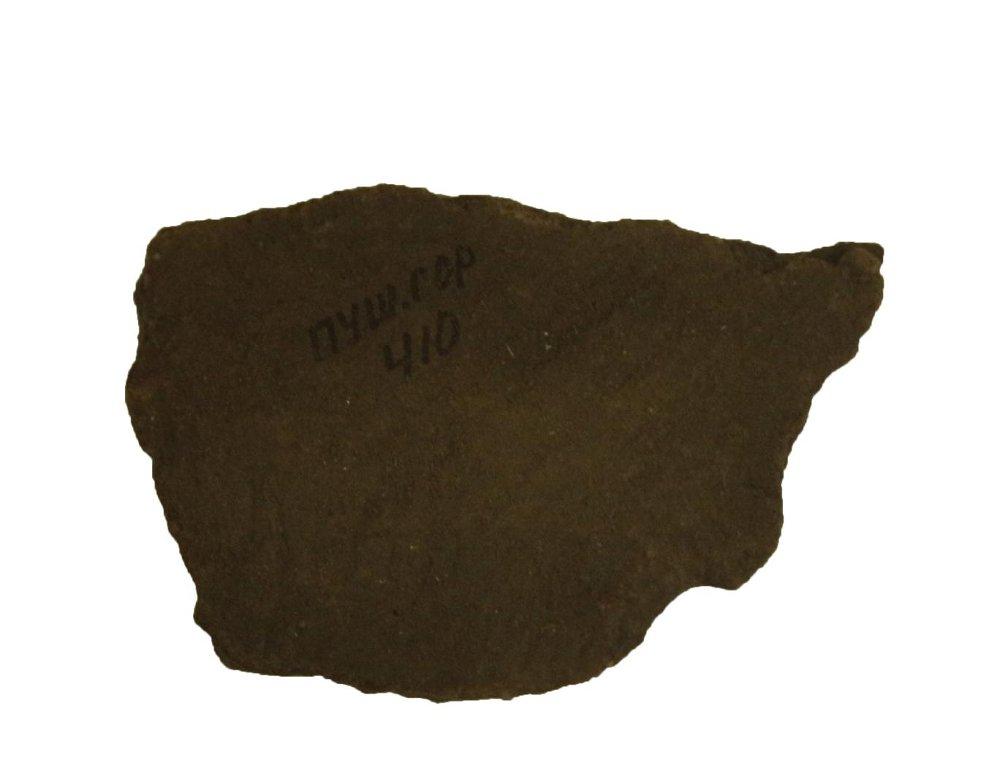 пуш.гор
410